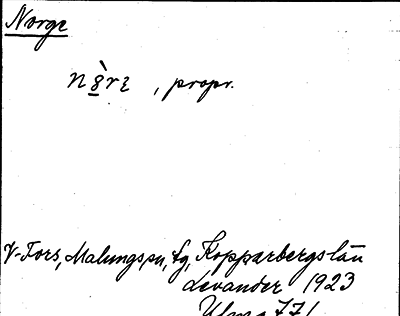 Norge
nò̱rɛ , propr.
V-Fors, Malungs pn, fg, Kopparbergs län
Levander 1923